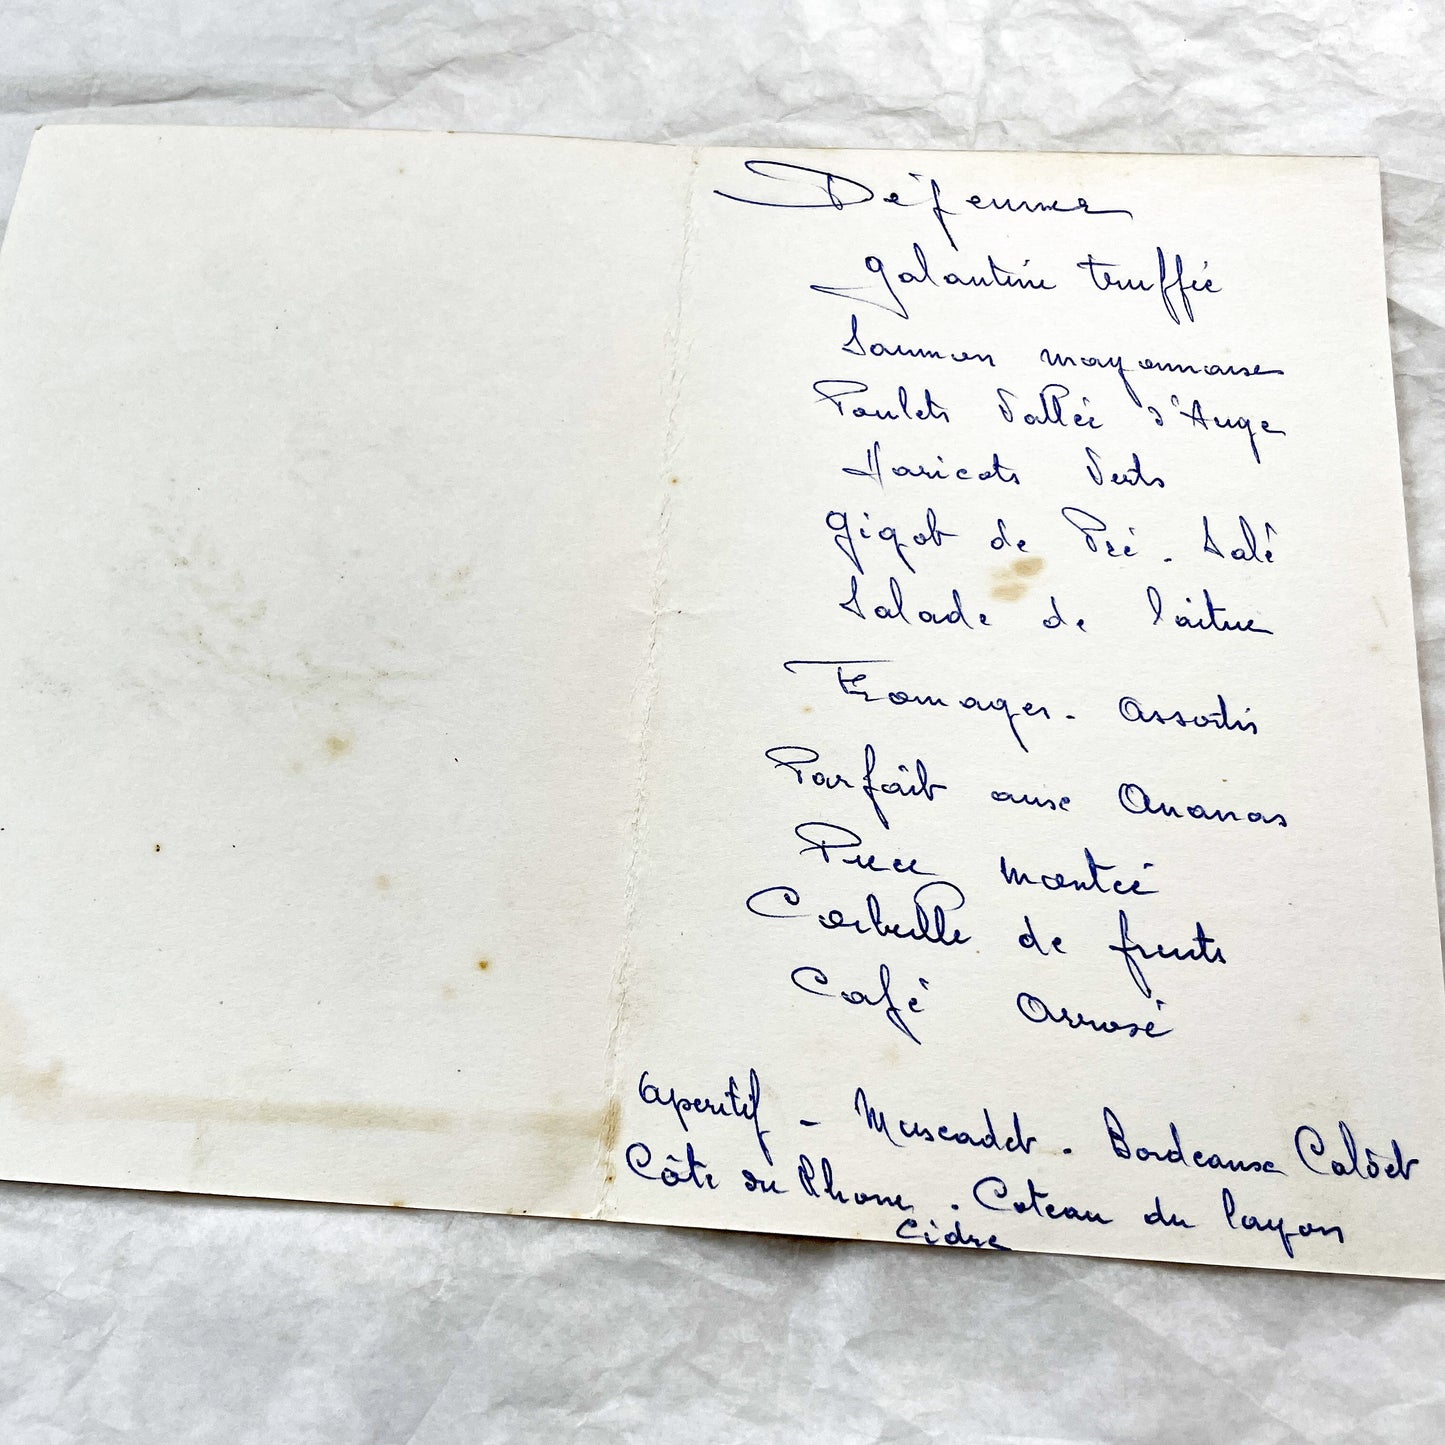 Déjeuner
Galantine truffée
Saumon mayonnaise
Poulets Vallée d'Auge
Haricots Verts
Gigot de Pré-Salé
Salade de laitue
Fromages - Assortis
Parfait aux Ananas
Pièce montée
Corbeille de fruits
Café Arrosé
Apéritif - Muscadet - Bordeaux Calvet
Côte du Rhone - Coteau du layon
Cidre